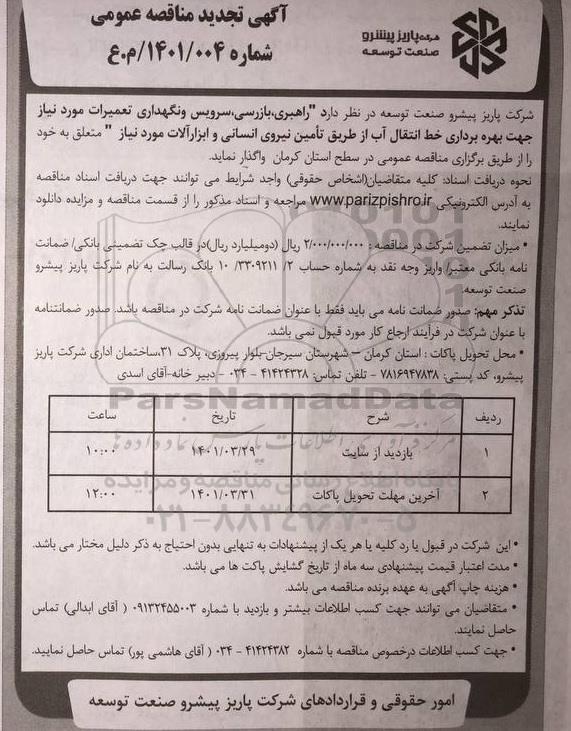 آگهی تجدید مناقصه عمومی
شماره ۱۴۰۱/۰۰۴/م.ع
شرکت پاریز پیشرو
صنعت توسعه
شرکت پاریز پیشرو صنعت توسعه در نظر دارد "راهبری،بازرسی،سرویس ونگهداری تعمیرات مورد نیاز
جهت بهره برداری خط انتقال آب از طریق تأمین نیروی انسانی و ابزارآلات مورد نیاز " متعلق به خود
را از طریق برگزاری مناقصه عمومی در سطح استان کرمان واگذار نماید.
نحوه دریافت اسناد: کلیه متقاضیان(اشخاص حقوقی) واجد شرایط می توانند جهت دریافت اسناد مناقصه
به آدرس الکترونیکی www.parizpishro.ir مراجعه و اسناد مذکور را از قسمت مناقصه و مزایده دانلود
نمایند.
• میزان تضمین شرکت در مناقصه : ۲/۰۰۰/۰۰۰/۰۰۰ ریال (دومیلیارد ریال)در قالب چک تضمینی بانکی/ ضمانت
نامه بانکی معتبر/ واریز وجه نقد به شماره حساب ۲/ ۳۳۰۹۲۱۱/ ۱۰ بانک رسالت به نام شرکت پاریز پیشرو
صنعت توسعه.
تذکر مهم: صدور ضمانت نامه می باید فقط با عنوان ضمانت نامه شرکت در مناقصه باشد. صدور ضمانتنامه
با عنوان شرکت در فرآیند ارجاع کار مورد قبول نمی باشد.
• محل تحویل پاکات : استان کرمان – شهرستان سیرجان-بلوار پیروزی، پلاک ۳۱،ساختمان اداری شرکت پاریز
پیشرو، کد پستی: ۷۸۱۶۹۴۷۸۳۸ - تلفن تماس: ۴۱۴۲۴۳۲۸ - ۰۳۴ - دبیر خانه-آقای اسدی
ParsNamadData
ردیف شرح تاریخ ساعت
۱ بازدید از سایت ۱۴۰۱/۰۳/۲۹ ۱۰:۰۰
۲ آخرین مهلت تحویل پاکات ۱۴۰۱/۰۳/۳۱ ۱۲:۰۰
۰۲۱-۸۸۳۴۹۶۷۰-۵
• این شرکت در قبول یا رد کلیه یا هر یک از پیشنهادات به تنهایی بدون احتیاج به ذکر دلیل مختار می باشد.
• مدت اعتبار قیمت پیشنهادی سه ماه از تاریخ گشایش پاکت ها می باشد.
• هزینه چاپ آگهی به عهده برنده مناقصه می باشد.
• متقاضیان می توانند جهت کسب اطلاعات بیشتر و بازدید با شماره ۰۹۱۳۲۴۵۵۰۰۳ ( آقای ابدالی) تماس
حاصل نمایند.
• جهت کسب اطلاعات درخصوص مناقصه با شماره ۴۱۴۲۴۳۸۲ - ۰۳۴ ( آقای هاشمی پور) تماس حاصل نمایید.
امور حقوقی و قراردادهای شرکت پاریز پیشرو صنعت توسعه